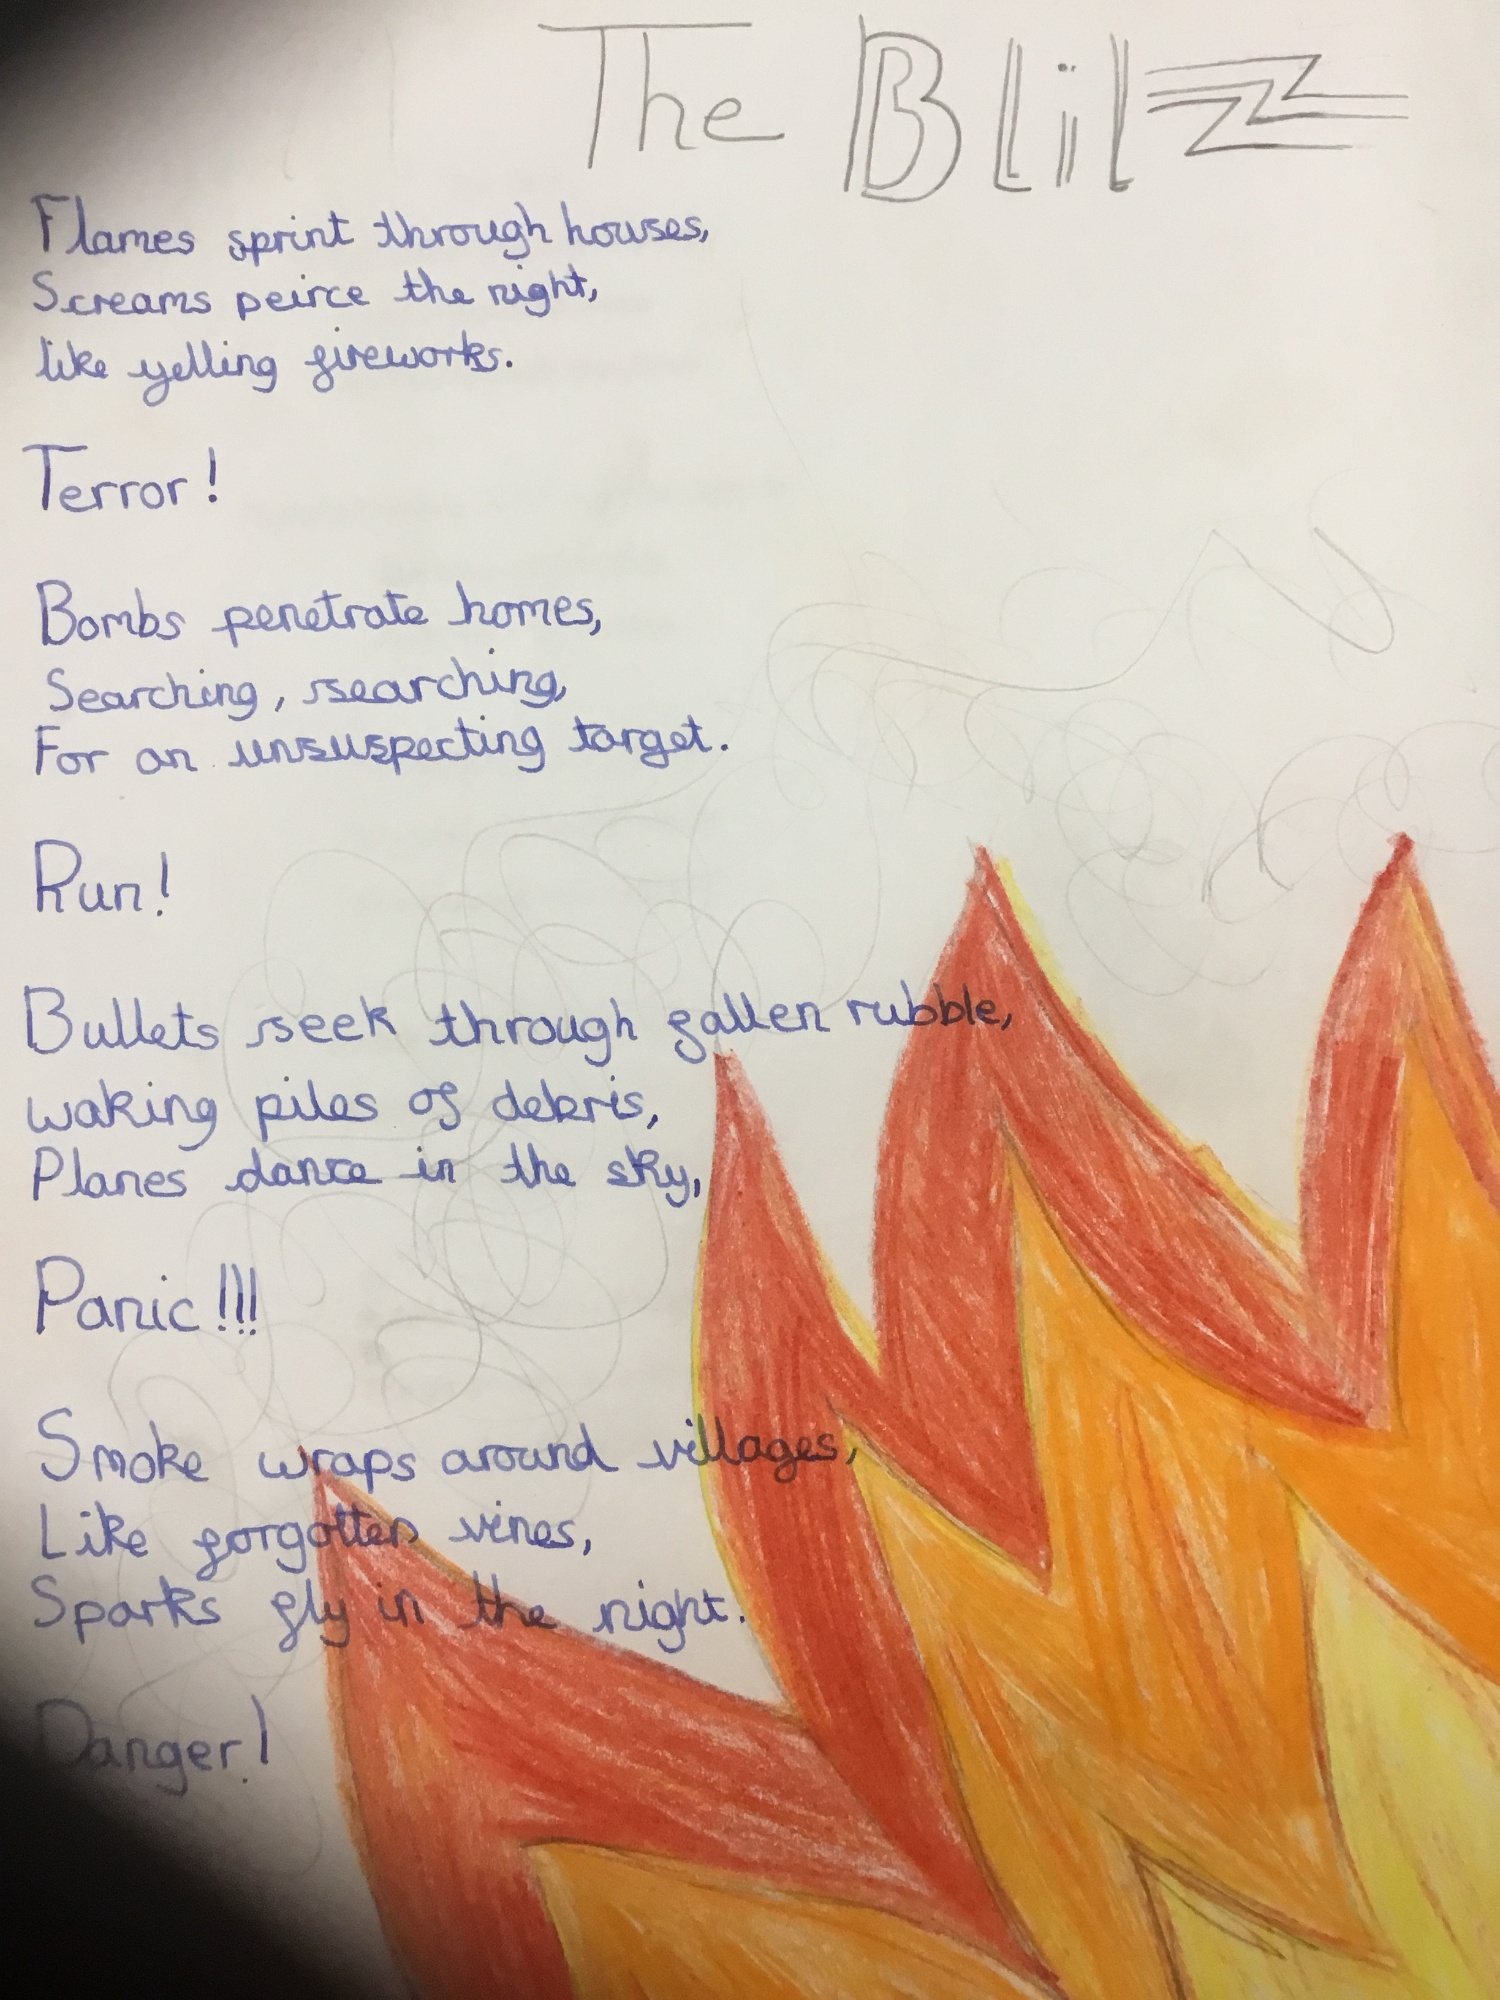 The Blitz
Flames sprint through houses,
Screams peirce the night,
like yelling fireworks.
Terror!
Bombs penetrate homes,
Searching, searching,
For an unsuspecting target.
Run!
Bullets seek through fallen rubble,
waking piles of debris,
Planes dance in the sky,
Panic!!!
Smoke wraps around villages,
Like forgotten vines,
Sparks fly in the night.
Danger!